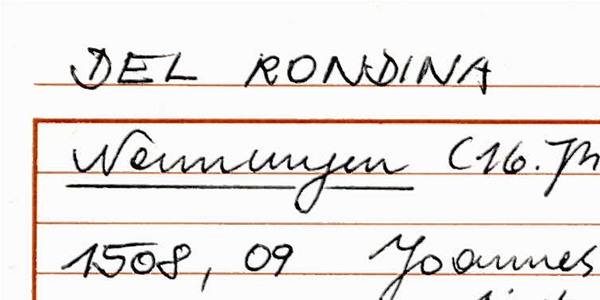 DEL RONDINA
Nennungen (16. Jh
1508, 09 Joannes